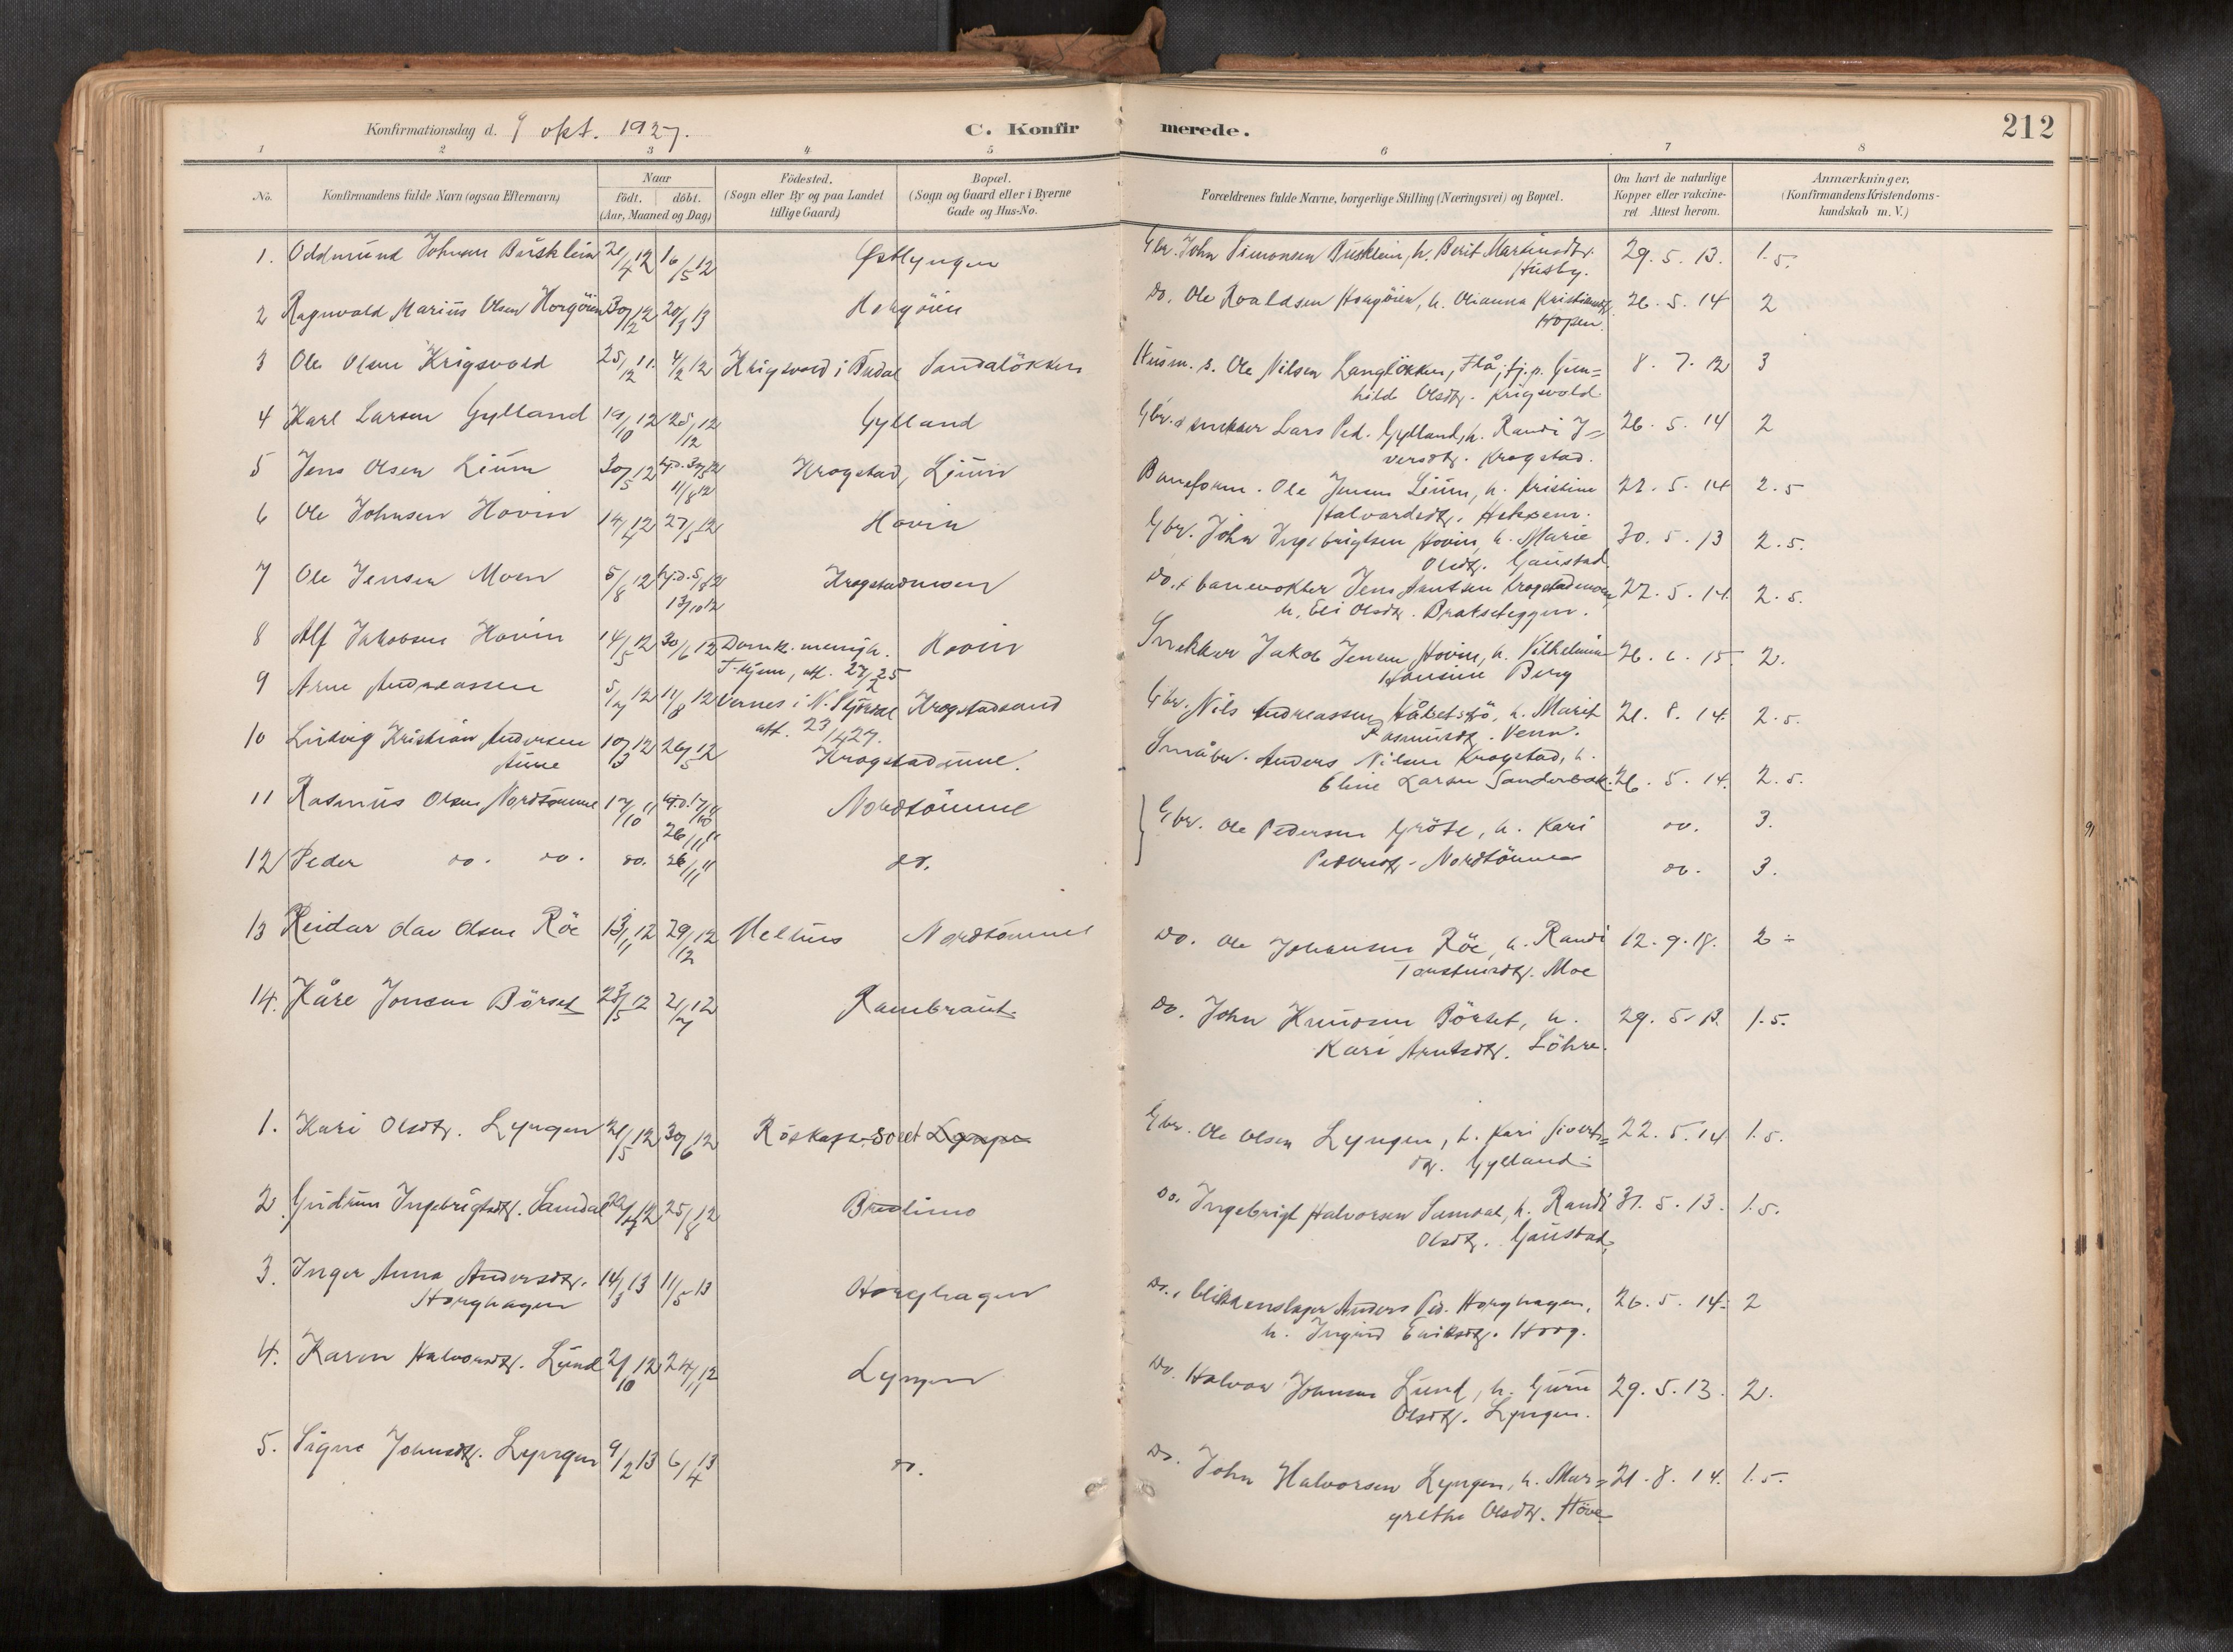 Konfirmationsdag d. 9 okt. 1927. C. Konfirmerede. 212
1 2 3 4 5 6 7 8
No. Konfirmandens fulde Navn (ogsaa Efternavn) Naar födt, döbt. (Aar, Maaned og Dag) Födested, (Sogn eller By og paa Landet tillige Gaard) Bopæl. (Sogn og Gaard eller i Byerne Gade og Hus-No. Forældrenes fulde Navne, borgerlige Stilling (Næringsvei) og Bopæl. Om havt de naturlige Kopper eller vakcineret Attest herom. Anmærkninger, (Konfirmandens Kristendomskundskab m. V.)
1. Oddmund Johnsen Busklein 21/4 12 16/5 12 Østlyngen Gbr. John Simonsen Busklein, h. Berit Martinsdtr. 29. 5. 13. 1.5.
Husby.
2 Ragnvald Marius Olsen Horgöien 30/12 12 20/3 13 Horgöien Do. Ole Roaldsen Horgöien, h. Olianna Kristiansdtr. 26. 5. 14 2
Hopen.
3 Ole Olsen Krigsvold 25/12 11. 4/2 12 Krigsvold i Budal Sandalökken Husm. s. Ole Nilsen Langlökken, Flå, tj.p. Gun= 8. 7. 12 3
hild Olsdtr. Krigsvold
4 Karl Larsen Gylland 19/10 12 25/12 12 Gylland Gbr. o snekker Lars Ped. Gylland, h. Randi I= 26. 5. 14 2
versdtr. Krogstad.
5 Jens Olsen Lium 30/5 12 hj.d. 30/5 12 Krogstad, Lium Baneform. Ole Jensen Lium, h. Kristine 22. 5. 14 2.5
11/8 12 Halvardsdtr.
6 Ole Johnsen Hovin 14/4 12 27/5 12 Hovin Gbr. John Ingebrigtsen Hovin, h. Marie 30. 5. 13 2.5.
Olsdtr. Gaustad
7 Ole Jensen Moen 5/8 12 hj.d. 5/8 12 Krogstadmoen Do. + banevokter Jens Arntsen Krogstadmoen, 22. 5. 14 2.5.
13/10 12 h. Eli Olsdtr. Brakseteggen.
8 Alf Jakobsen Hovin 14/5 12 30/6 12 Domk. menigh. Hovin Snekker Jakob Jensen Hovin, h. Vilhelmine 26. 6. 15 2.
T.hjem, att. 27/2 25 Hansine Berg
9 Arne Andreassen 5/7 12 11/8 12 Vernes i N. Stjördal Krogstadsand Gbr. Nils Andreassen Håbetsjö, h. Marit 21. 8. 14. 2.5.
att. 23/1 27. Rasmusdtr. Venn.
10 Ludvig Kristian Andersen 10/3 12 26/5 12 Krogstadaune. Småbr. Anders Nilsen Krogstad, h.
Aune Eline Larsen Sanderbak. 26. 5. 14. 2.5.
11 Rasmus Olsen Nordtömme 17/10 11 hj.d. 17/10 11 Nordtömme Gbr. Ole Pedersen Gröte, h. Kari do. 3.
26/11 11
12 Peder do. do. do. 26/11 11 do. Pedersdtr. Nordtömme do. 3.
13 Reidar Olav Olsen Röe 13/11 12 29/12 12 Melhus Nordtömme Do. Ole Johansen Röe, h. Randi 12. 9. 18. 2 ÷
Torsteinsdtr. Moe
14. Kåre Jonsen Börset 23/5 12 21/7 12 Rambraut. Do. John Knudsen Börset, h. 29. 5. 13. 1.5.
Kari Arntsdtr. Löhre.
1. Kari Olsdtr. Lyngen 21/5 12 30/6 12 Röskaft. Soret Lyngen Gbr. Ole Olsen Lyngen, h. Kari Siverts= 22. 5. 14 1.5.
dtr. Gylland.
2. Gudrun Ingebrigtsdtr. Samdal 22/7 12 25/8 12 Bredlimo Do. Ingebrigt Halvorsen Samdal, h. Randi 31. 5. 13. 1.5.
Olsdtr. Gaustad.
3. Inger Anna Andersdtr. 14/3 13 11/5 13 Horghagen Do., blikkenslager Anders Ped. Horghagen, 26. 5. 14. 2
Horghagen h. Ingrid Eriksdtr. Horg.
4. Karen Halvorsdtr. Lund 2/10 12 24/11 12 Lyngen Do. Halvor Johnsen Lund, h. Guru 29. 5. 13. 2.
Olsdtr. Lyngen.
5. Signe Johnsdtr. Lyngen 9/2 13 6/4 13 do. Do. John Halvorsen Lyngen, h. Mar= 21. 8. 14. 1.5.
grethe Olsdtr. Höve